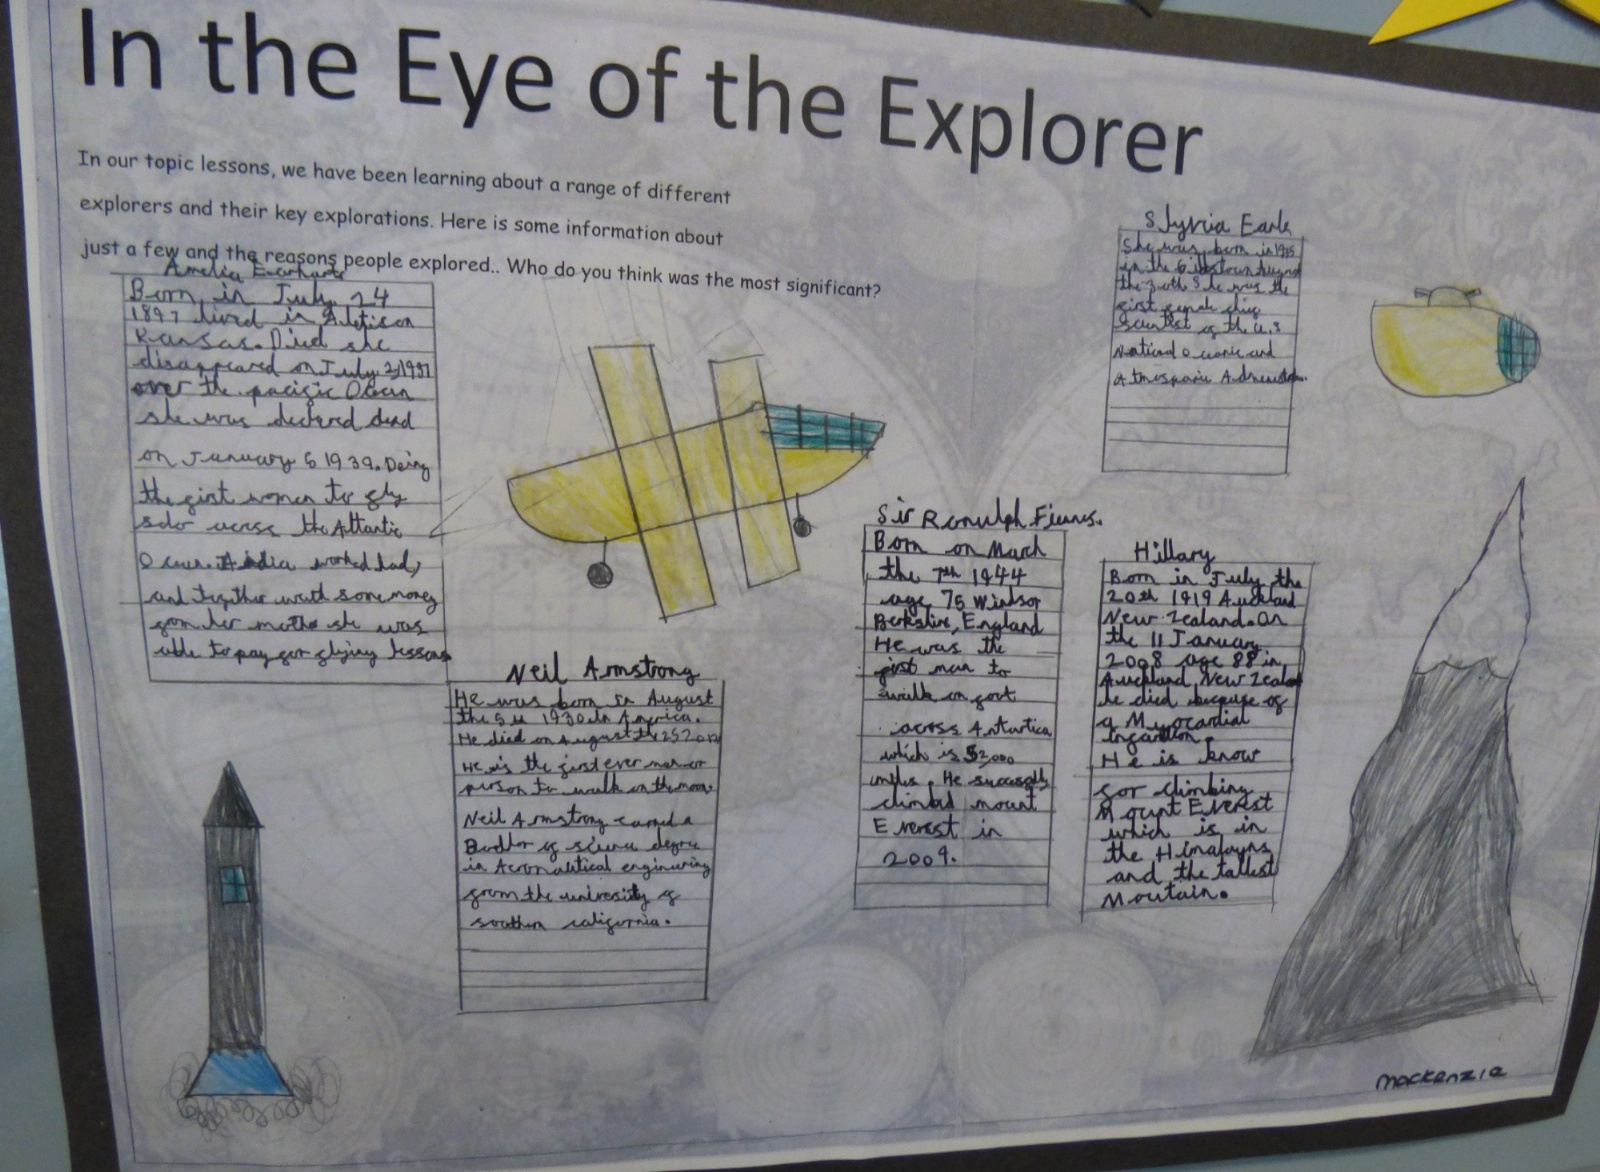 In the Eye of the Explorer
In our topic lessons, we have been learning about a range of different
explorers and their key explorations. Here is some information about
just a few and the reasons people explored.. Who do you think was the most significant?
Amelia Earharts
Born in July 24
1897 lived in Attison
Kansas. Died she
disappeared on July 2, 1937
over the pacific Ocean
she was declered dead
on January 5 1939. Being
the first women to fly
solo across the Altantic
Ocean. worked hard,
and together with some money
from her mother she was
able to pay for flying lessons
Neil Armstrong
He was born in August
the 5th 1930 in America.
He died on August the 25 2012
He is the first ever man or
person to walk on the moon.
Neil Armstrong earned a
of science degree
in Aeronautical engineering
from the university of
southern california.
Slyvia Earle
She was born in 1935
in the August
the 30th She was the
first female
scientist of the U.S
National Oceanic and
Atmosparic
Sir Ranulph Fiennes.
Born on March
the 7th 1944
age 75 Windsor
Berkshire, England
He was the
first man to
walk on foot
across Antartica
which is
miles. He
climbed mount
Everest in
2009.
Hillary
Born in July the
20th 1919 Auckland
New Zealand. On
the 11 January
2008 age 88 in
Auckland, New Zealand
he died because of
a Myocardial
He is know
for climbing
Mount Everest
which is in
the Himalayns
and the tallest
Moutain.
Mackenzie